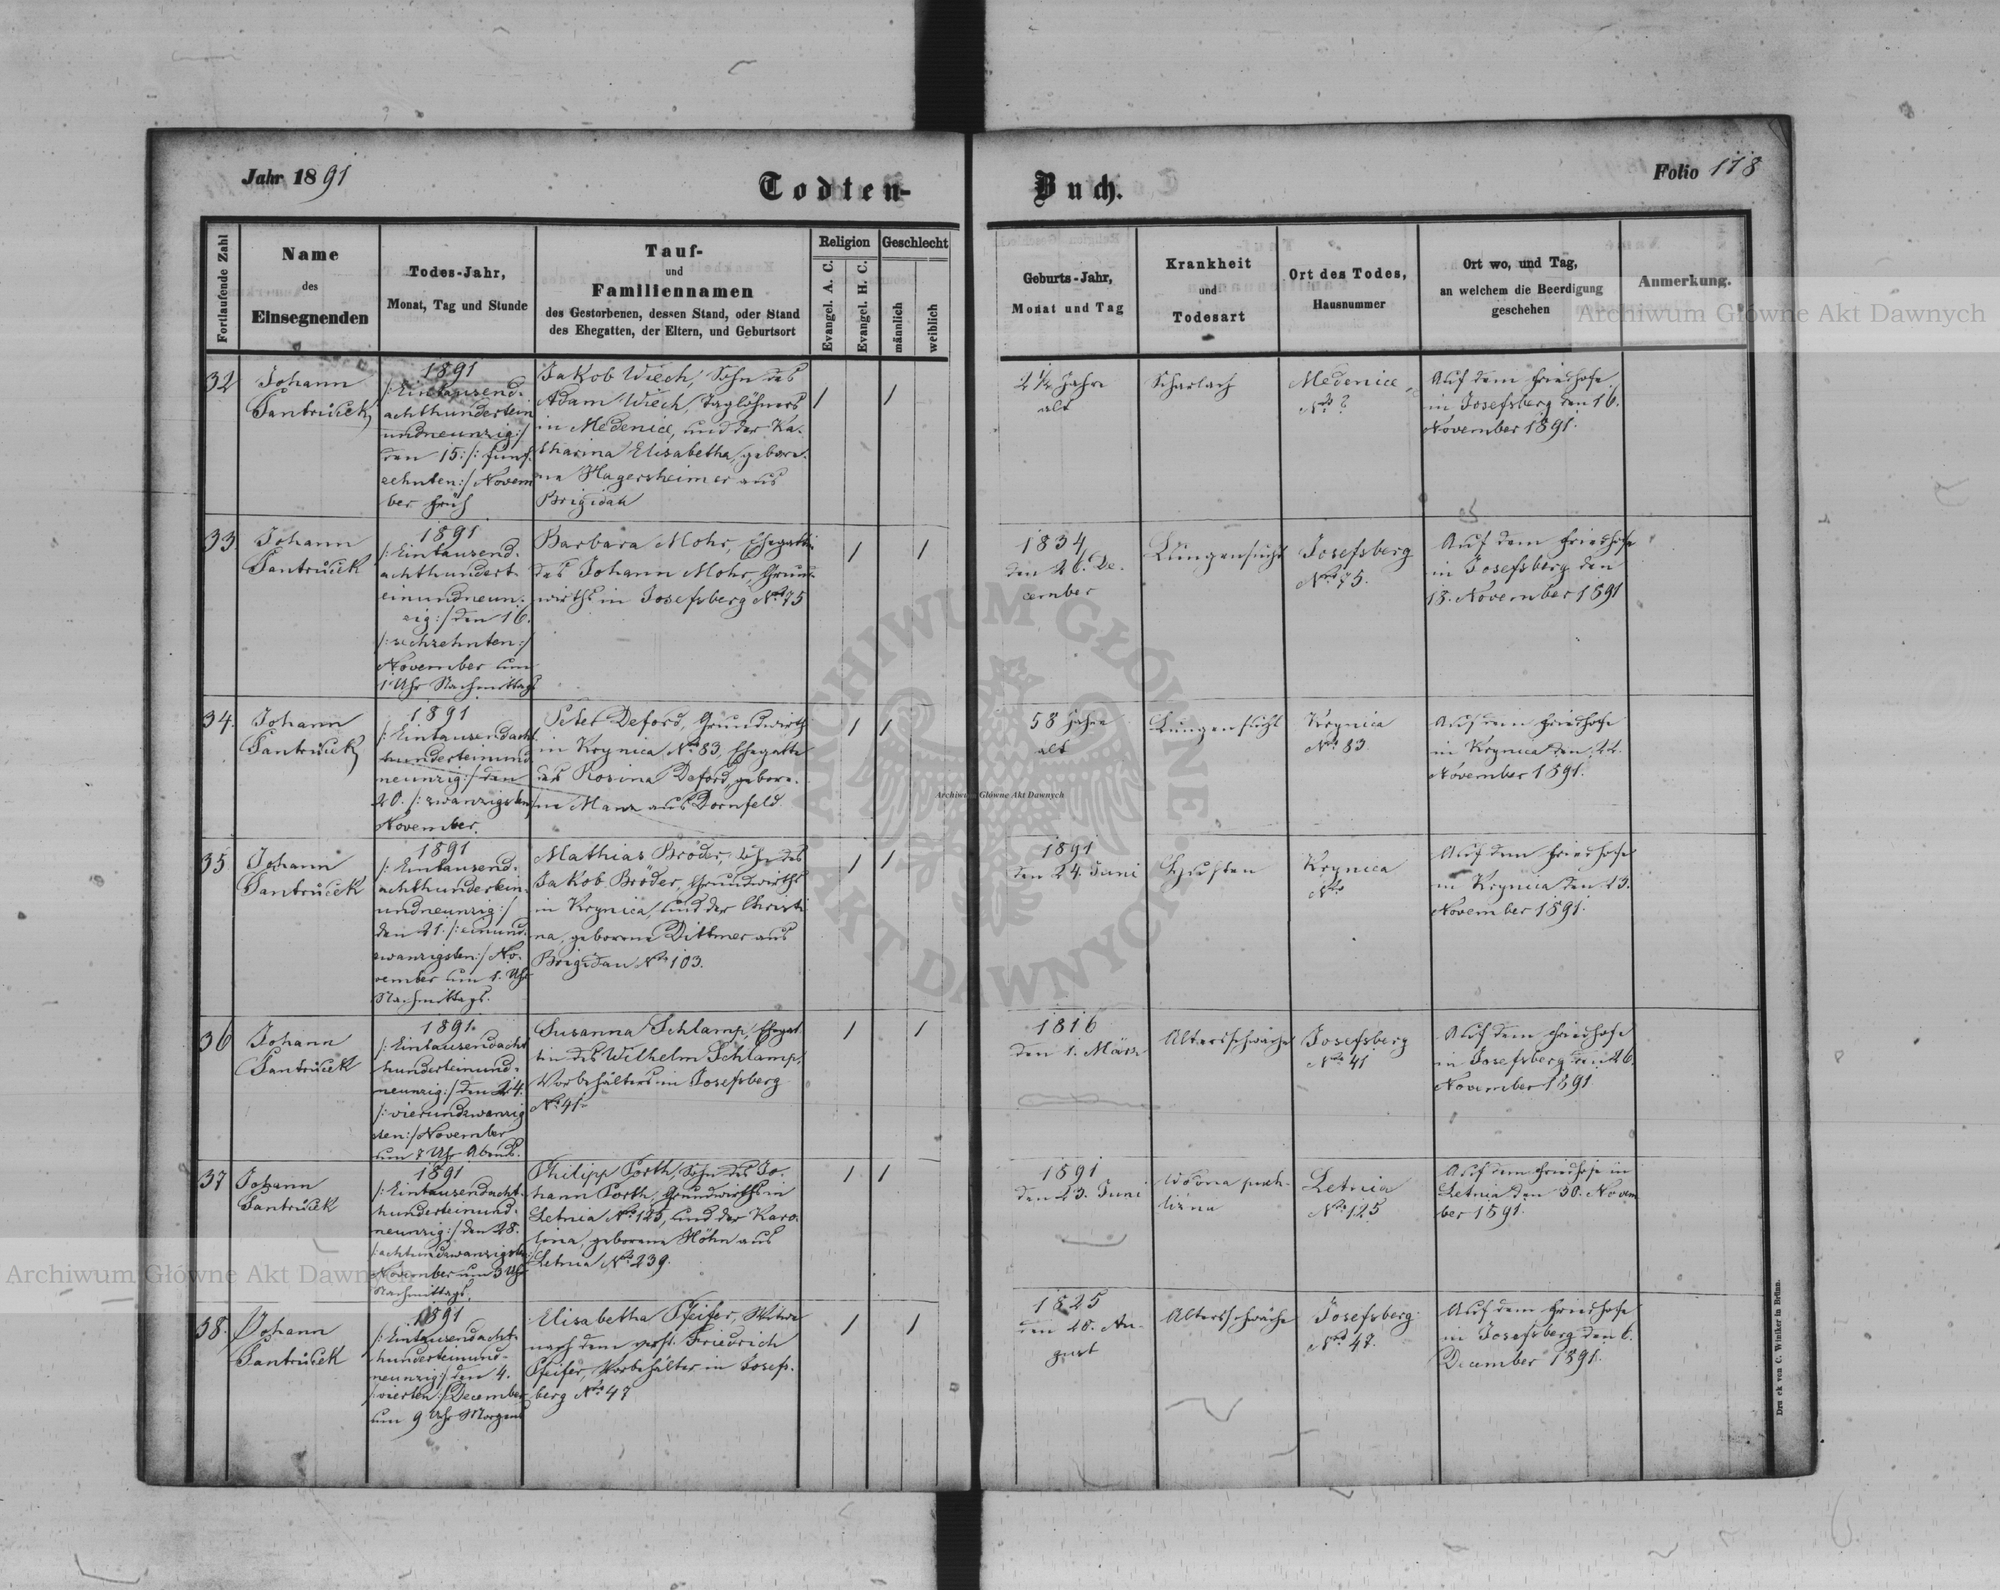 Jahr 1891
Todten-
Buch.
Folio 178
Fortlaufende Zahl
Name
des
Einsegnenden
Todes-Jahr,
Monat, Tag und Stunde
Tauf-
und
Familiennamen
des Gestorbenen, dessen Stand, oder Stand
des Ehegatten, der Eltern, und Geburtsort
Religion
Evangel. A. C.
Evangel. H. C.
Geschlecht
männlich
weiblich
Geburts-Jahr,
Monat und Tag
Krankheit
und
Todesart
Ort des Todes,
Hausnummer
Ort wo, und Tag,
an welchem die Beerdigung
geschehen
Anmerkung.
32
Johann
Santrůček
1891
/:Eintausend-
achthundertein
undneunzig:/
den 15. /:fünf-
zehnten:/ Novem
ber früh
Jakob Wiech, Sohn des
Adam Wiech, Taglöhners
in Medenice, und der Ka-
tharina Elisabetha, gebore-
ne Hagersheimer aus
Brigidau
/
/
2 1/4 Jahre
alt
Scharlach
Medenice
No ?
Auf dem Friedhofe
in Josefsberg den 16.
November 1891.
33
Johann
Santrůček
1891
/:Eintausend-
achthundert
einundneun-
zig:/ den 16.
/:sechzehnten:/
November um
1 Uhr Nachmittags
Barbara Mohr, Ehegattin
des Johann Mohr, Grund-
wirths in Josefsberg No 75
/
/
1834
den 26. De-
cember
Lungensucht
Josefsberg
No 75.
Auf dem Friedhofe
in Josefsberg den
18. November 1891
34.
Johann
Santrůček
1891
/:Eintausendacht
hunderteinund
neunzig:/ den
20. /:zwanzigsten:/
November.
Peter Deford, Grundwirth
in Krynica No 83, Ehegatte
der Rosina Deford, gebore-
ne Manz aus Dornfeld
/
/
58 Jahre
alt
Lungensucht
Krynica
No 83
Auf dem Friedhofe
in Krynica den 22.
November 1891.
35
Johann
Santrůček
1891
/:Eintausend-
achthundertein-
undneunzig:/
den 21. /:einund-
zwanzigsten:/ No-
vember um 1. Uhr
Nachmittags.
Mathias Bröder, Sohn des
Jakob Bröder, Grundwirths
in Krynica, und der Christi
na, geborene Dittmer aus
Brigidau No 103.
/
/
1891
den 24. Juni
Husten
Krynica
No
Auf dem Friedhofe
in Krynica den 23.
November 1891.
36
Johann
Santrůček
1891.
/:Eintausendacht
hunderteinund-
neunzig:/ den 24.
/:vierundzwanzig
sten:/ November
um 7 Uhr Abends.
Susanna Schlamp, Ehegat
tin des Wilhelm Schlamp,
Vorbehälters in Josefsberg
No 41.
/
/
1816
den 1. März
Altersschwäche
Josefsberg
No 41
Auf dem Friedhofe
in Josefsberg den 26.
November 1891
37
Johann
Santrůček
1891
/:Eintausendacht-
hunderteinund-
neunzig:/ den 28.
/:achtundzwanzigsten:/
November um 3 Uhr
Nachmittags.
Philipp Porth, Sohn des Jo-
hann Porth, Grundwirths in
Letnia No 125, und der Karo-
lina, geborene Höhn aus
Letnia No 239.
/
/
1891
den 23. Juni
Letnia
No 125
Auf dem Friedhofe in
Letnia den 30. Novem
ber 1891.
38.
Johann
Santrůček
1891
/:Eintausendacht-
hunderteinund-
neunzig:/ den 4.
/:vierten:/ December
um 9 Uhr Morgens
Elisabetha Pfeifer, Witwe
nach dem verst. Friedrich
Pfeifer, Vorbehälter in Josefs-
berg No 47
/
/
1825
den 28. Au-
gust
Altersschwäche
Josefsberg
No 47.
Auf dem Friedhofe
in Josefsberg den 6.
December 1891.
Druck von C. Winiker in Brünn.
Archiwum Główne Akt Dawnych
Archiwum Główne Akt Dawnych
Archiwum Główne Akt Dawnych
ARCHIWUM GŁÓWNE · AKT DAWNYCH ·